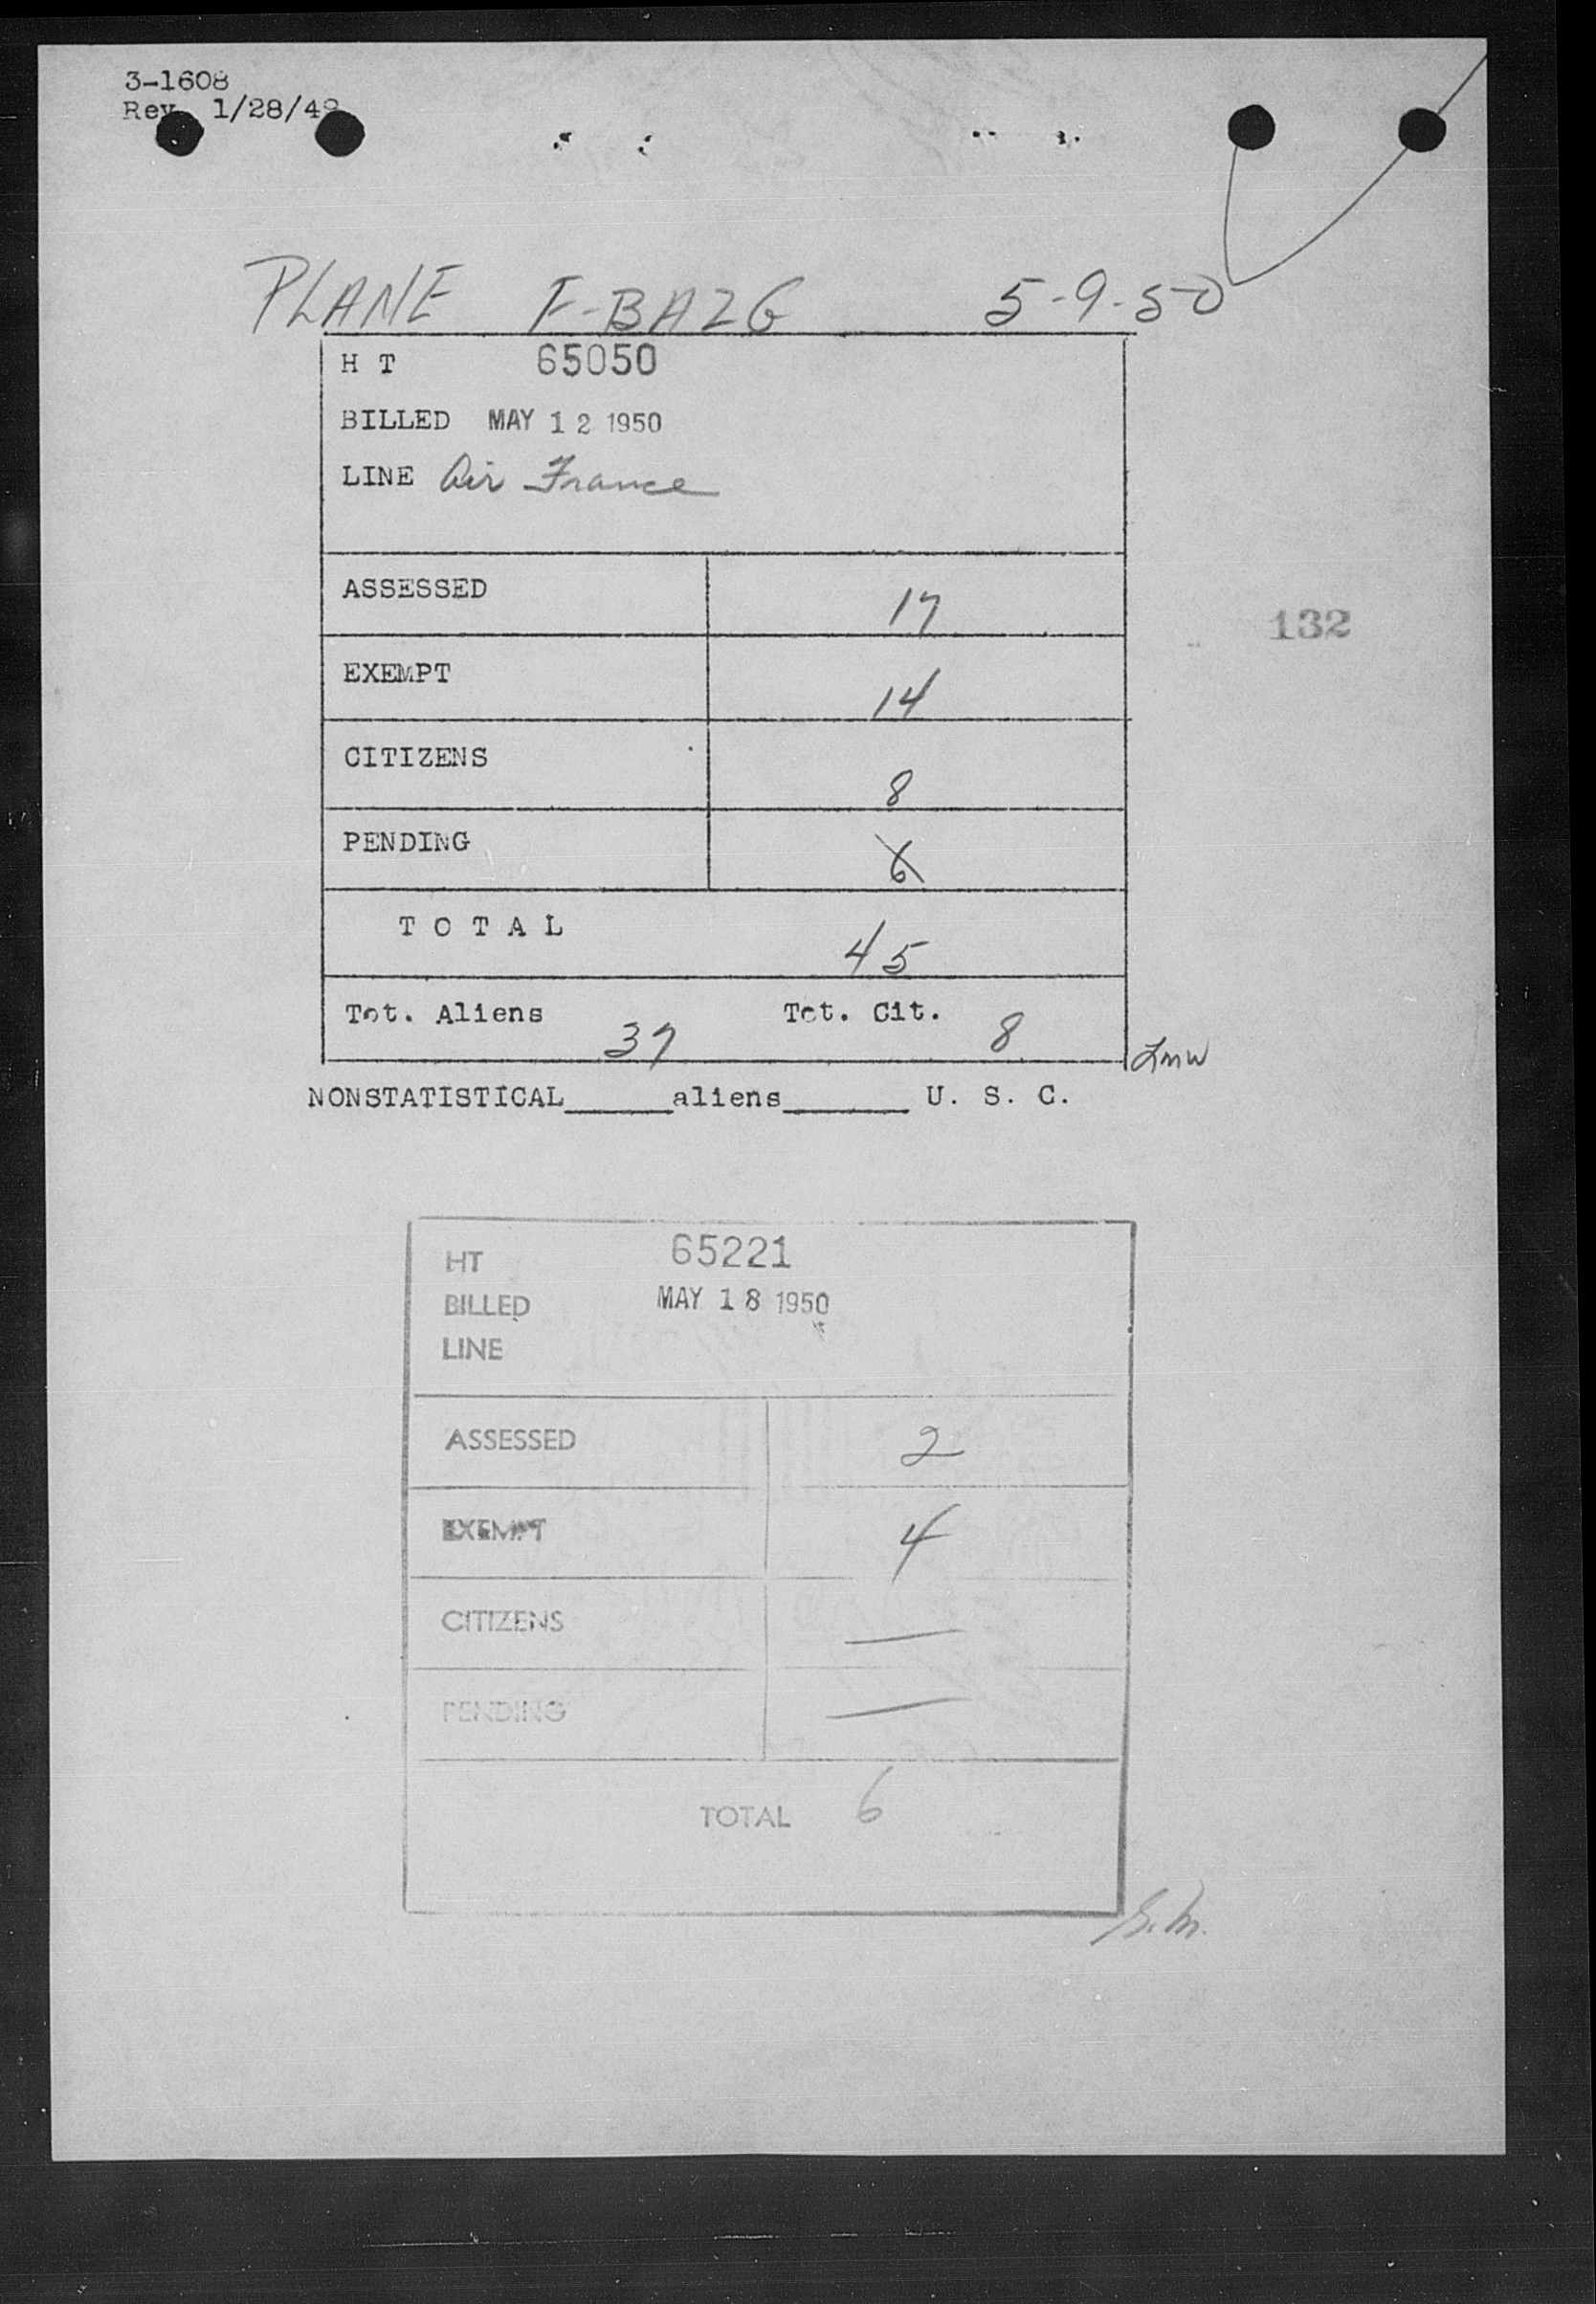 3-1608
Rev. 1/28/49
PLANE F-BAZG 5-9-50
H T 65050
BILLED MAY 12 1950
LINE Air France
ASSESSED 17
132
EXEMPT 14
CITIZENS 8
PENDING 6
T O T A L 45
Tot. Aliens 37 Tot. Cit. 8
Lmw
NONSTATISTICAL_____aliens______ U. S. C.
HT 65221
BILLED MAY 18 1950
LINE
ASSESSED 2
EXEMPT 4
CITIZENS —
PENDING —
TOTAL 6